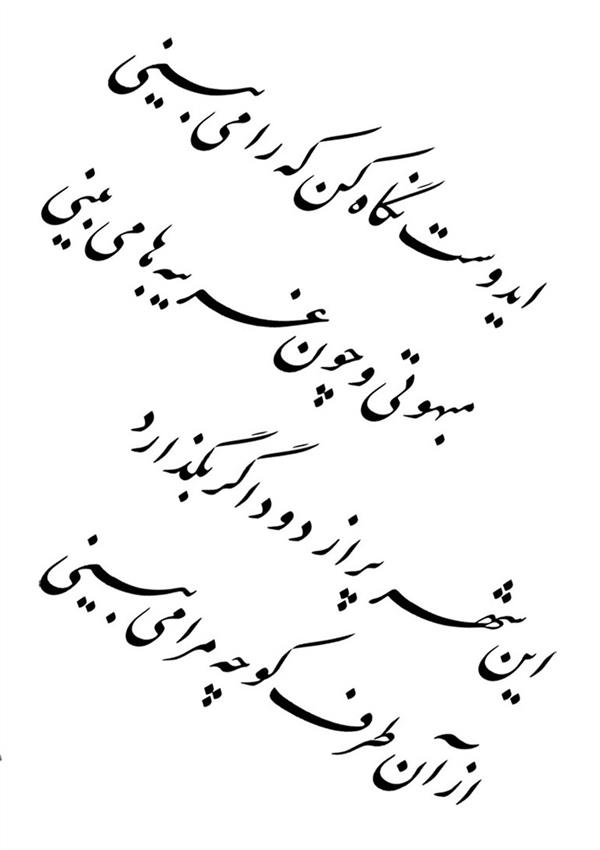 ایدوست نگاه کن که را می بینی
مبهوتی و چون غریبه ها می بینی
این شهر پر از دود اگر بگذارد
از آن طرف کوچه مرا می بینی